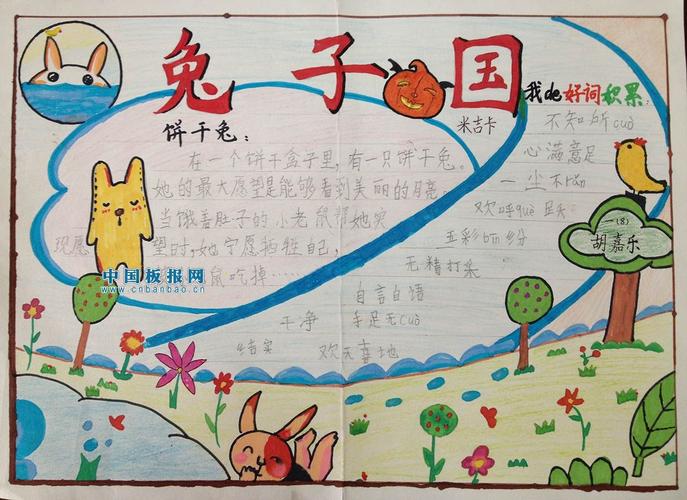 兔子国
米吉卡
饼干兔：
在一个饼干盒子里，有一只饼干兔。
她的最大愿望是能够看到美丽的月亮。
当饿着肚子的小老鼠帮她实
现愿望时，她宁愿牺牲自己，
鼠吃掉……
中国板报网
www.cnbanbao.cn
我de好词积累：
不知所cuò
心满意足
一尘不
欢呼què
五彩bīn纷
无精打采
自言自语
手足无cuò
干净
结实
欢天喜地
一(8)
胡嘉乐